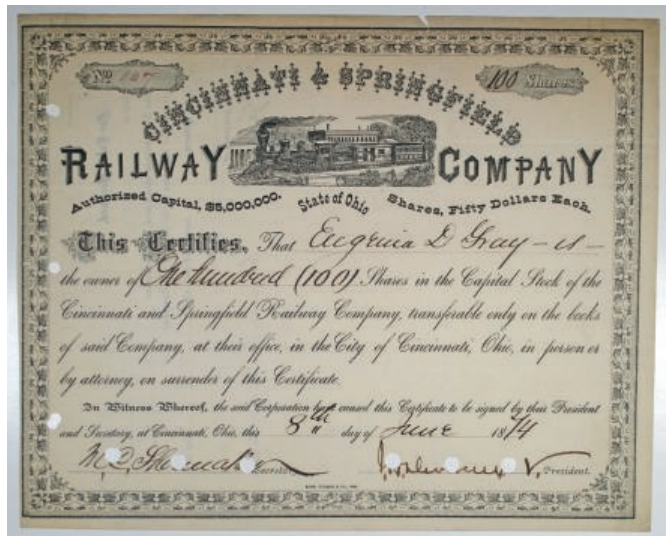 No 100 Shares
CINCINNATI & SPRINGFIELD
RAILWAY COMPANY
Authorized Capital, $5,000,000. State of Ohio Shares, Fifty Dollars Each.
This Certifies, That Eugenia D Gray - is -
the owner of One hundred (100) Shares in the Capital Stock of the
Cincinnati and Springfield Railway Company, transferable only on the books
of said Company, at their office, in the City of Cincinnati, Ohio, in person or
by attorney, on surrender of this Certificate.
In Witness Whereof, the said Corporation have caused this Certificate to be signed by their President
and Secretary, at Cincinnati, Ohio, this 8th day of June 1874
Secretary. V. President.